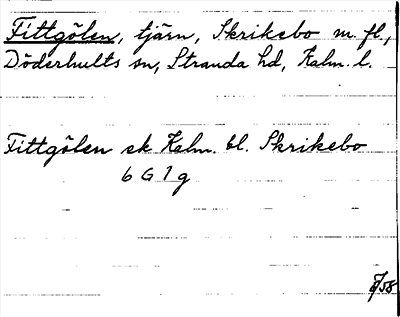 Fittgölen, tjärn, Skrikebo m. fl.,
Döderhults sn, Stranda hd, Kalm. l.
Fittgölen ek Kalm. bl. Skrikebo
6 G 1 g
/58